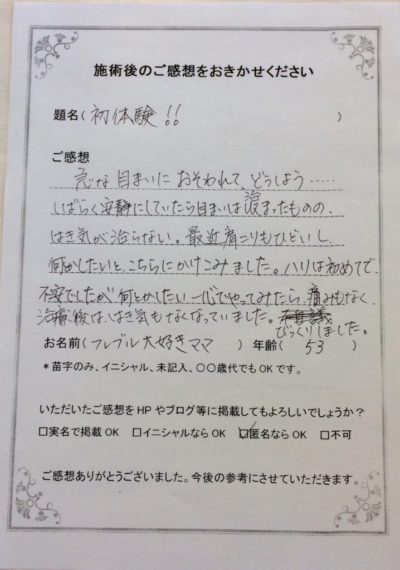 施術後のご感想をおきかせください
題名( 初体験!! )
ご感想
急な目まいにおそわれて、どうしよう……
しばらく安静にしていたら目まいは治まったものの、
はき気が治らない。最近肩こりもひどいし、
何とかしたいと、こちらにかけこみました。ハリは初めてで、
不安でしたが何とかしたい一心でやってみたら、痛みもなく、
治療後は、はき気もなくなっていました。
びっくりしました。
お名前( フレブル大好きママ ) 年齢( 53 )
*苗字のみ、イニシャル、未記入、〇〇歳代でもOKです。
いただいたご感想をHPやブログ等に掲載してもよろしいでしょうか?
□実名で掲載OK □イニシャルならOK ☑匿名ならOK □不可
ご感想ありがとうございました。今後の参考にさせていただきます。